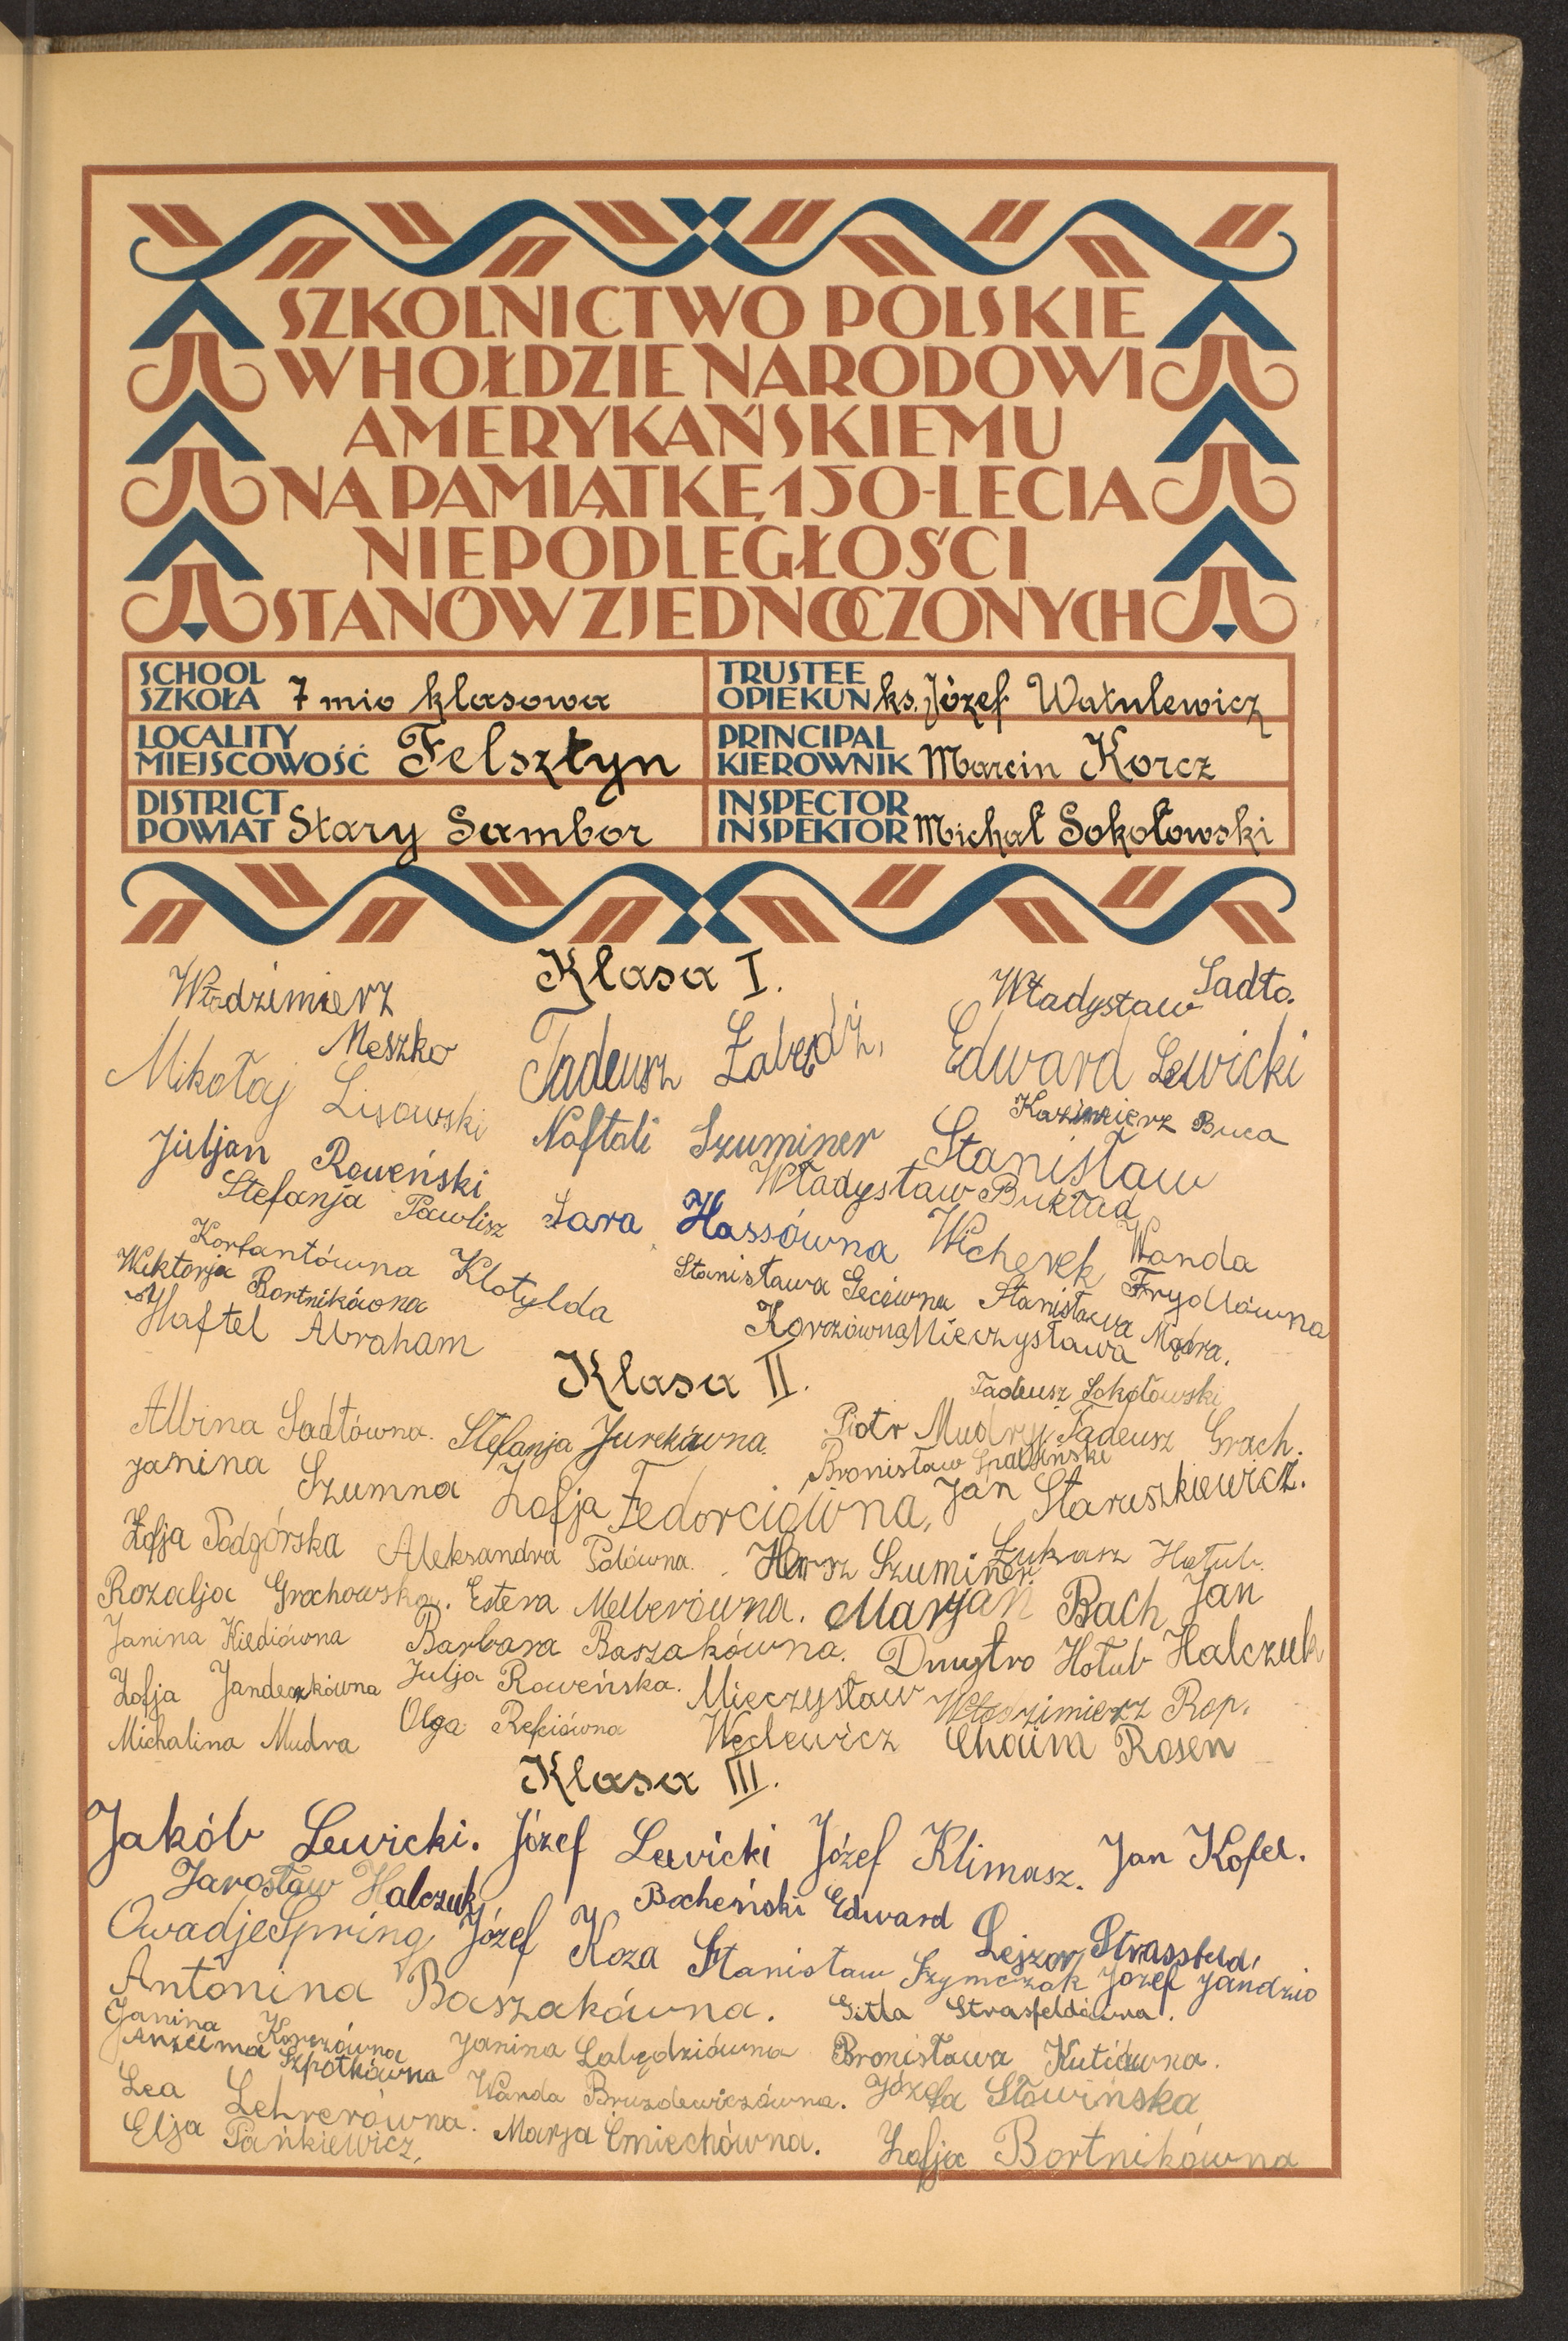 SZKOLNICTWO POLSKIE
W HOŁDZIE NARODOWI
AMERYKAŃSKIEMU
NA PAMIĄTKĘ 150-LECIA
NIEPODLEGŁOŚCI
STANÓW ZJEDNOCZONYCH
SCHOOL
SZKOŁA 7 mio klasowa
TRUSTEE
OPIEKUN ks. Józef Watulewicz
LOCALITY
MIEJSCOWOŚĆ Felsztyn
PRINCIPAL
KIEROWNIK Marcin Korcz
DISTRICT
POWIAT Stary Sambor
INSPECTOR
INSPEKTOR Michał Sokołowski
Klasa I.
Włodzimierz Meszko
Władysław Sadło.
Mikołaj Lisowski
Tadeusz Łabędź.
Edward Lewicki
Kazimierz Buca
Juljan Roweński
Naftali Szuminer
Stanisław
Władysław Bukład
Stefanja Pawlisz
Sara Hassówna
Wicherek Wanda
Korfantówna Klotylda
Stanisława Gecówna
Frydlówna
Wiktorja Bortnikówna
Stanisława Mądra.
Haftel Abraham
Korczówna Mieczysława
Klasa II.
Tadeusz Sokołowski
Albina Sadłówna. Stefanja Jurekówna. Piotr Mudryj Tadeusz Groch.
Janina Szumna
Bronisław
Zofja Fedorciówna, Jan Staruszkiewicz.
Zofja Podgórska Aleksandra Polówna. Hersz Szuminer. Łukasz Hołub.
Rozalja Grochowska. Estera Melberówna. Marjan Bach Jan
Janina Kiediówna Barbara Baszakówna. Dmytro Hołub Halczuk
Zofja Jandeszkówna Julja Roweńska. Mieczysław Włodzimierz Rop.
Michalina Mudra Olga Refciówna Węclewicz Chaim Rosen
Klasa III.
Jakób Lewicki. Józef Lewicki Józef Klimasz. Jan Kofel.
Jarosław Halczuk Bocheński Edward Lejzor Strassfeld.
Owadje Spring Józef Koza Stanisław Szymczak Józef Jandzio
Antonina Baszakówna. Gitla Strasfeldówna.
Janina Korczówna
Anzelma Szpotkówna Janina Łabędziówna Bronisława Kutiówna.
Lea Lehrerówna. Wanda Bruzdewiczówna. Józefa Słowińska
Elja Pańkiewicz. Marja Ćmiechówna. Zofja Bortnikówna